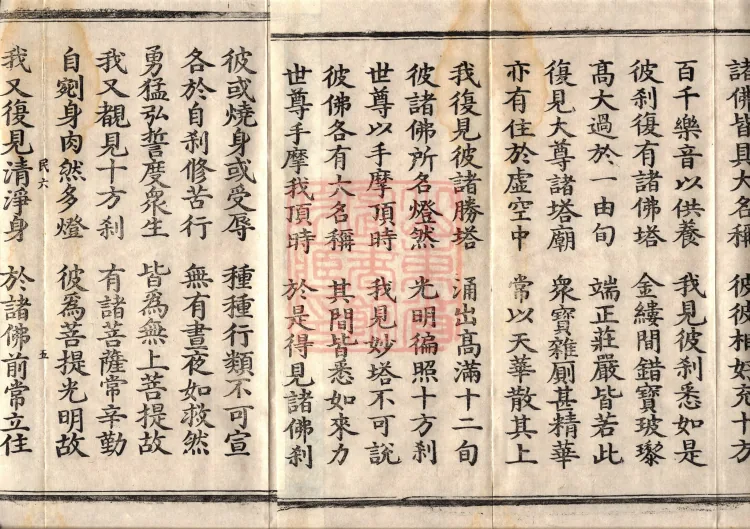 諸佛皆具大名稱 彼彼相好充十方
百千樂音以供養 我見彼刹悉如是
彼刹復有諸佛塔 金縷間錯寶玻瓈
髙大過於一由旬 端正莊嚴皆若此
復見大尊諸塔廟 衆寶雜厠甚精華
亦有住於虚空中 常以天華散其上
我復見彼諸勝塔 涌出髙滿十二旬
彼諸佛所名燈然 光明徧照十方刹
世尊以手摩頂時 我見妙塔不可説
彼佛各有大名稱 其間皆悉如來力
世尊手摩我頂時 於是得見諸佛刹
彼或燒身或受辱 種種行類不可宣
各於自刹修苦行 無有晝夜如救然
勇猛弘誓度衆生 皆為無上菩提故
我又覩見十方刹 有諸菩薩常辛勤
自剜身肉然多燈 彼為菩提光明故
民六 五
我又復見清淨身 於諸佛前常立住